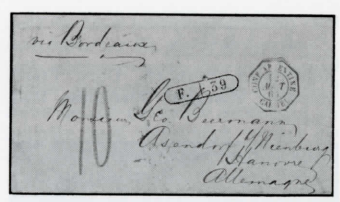 via Bordeaux
F. 39
10
Monsieur Geo
Asendorf Nienburg
Hanovre
Allemagne